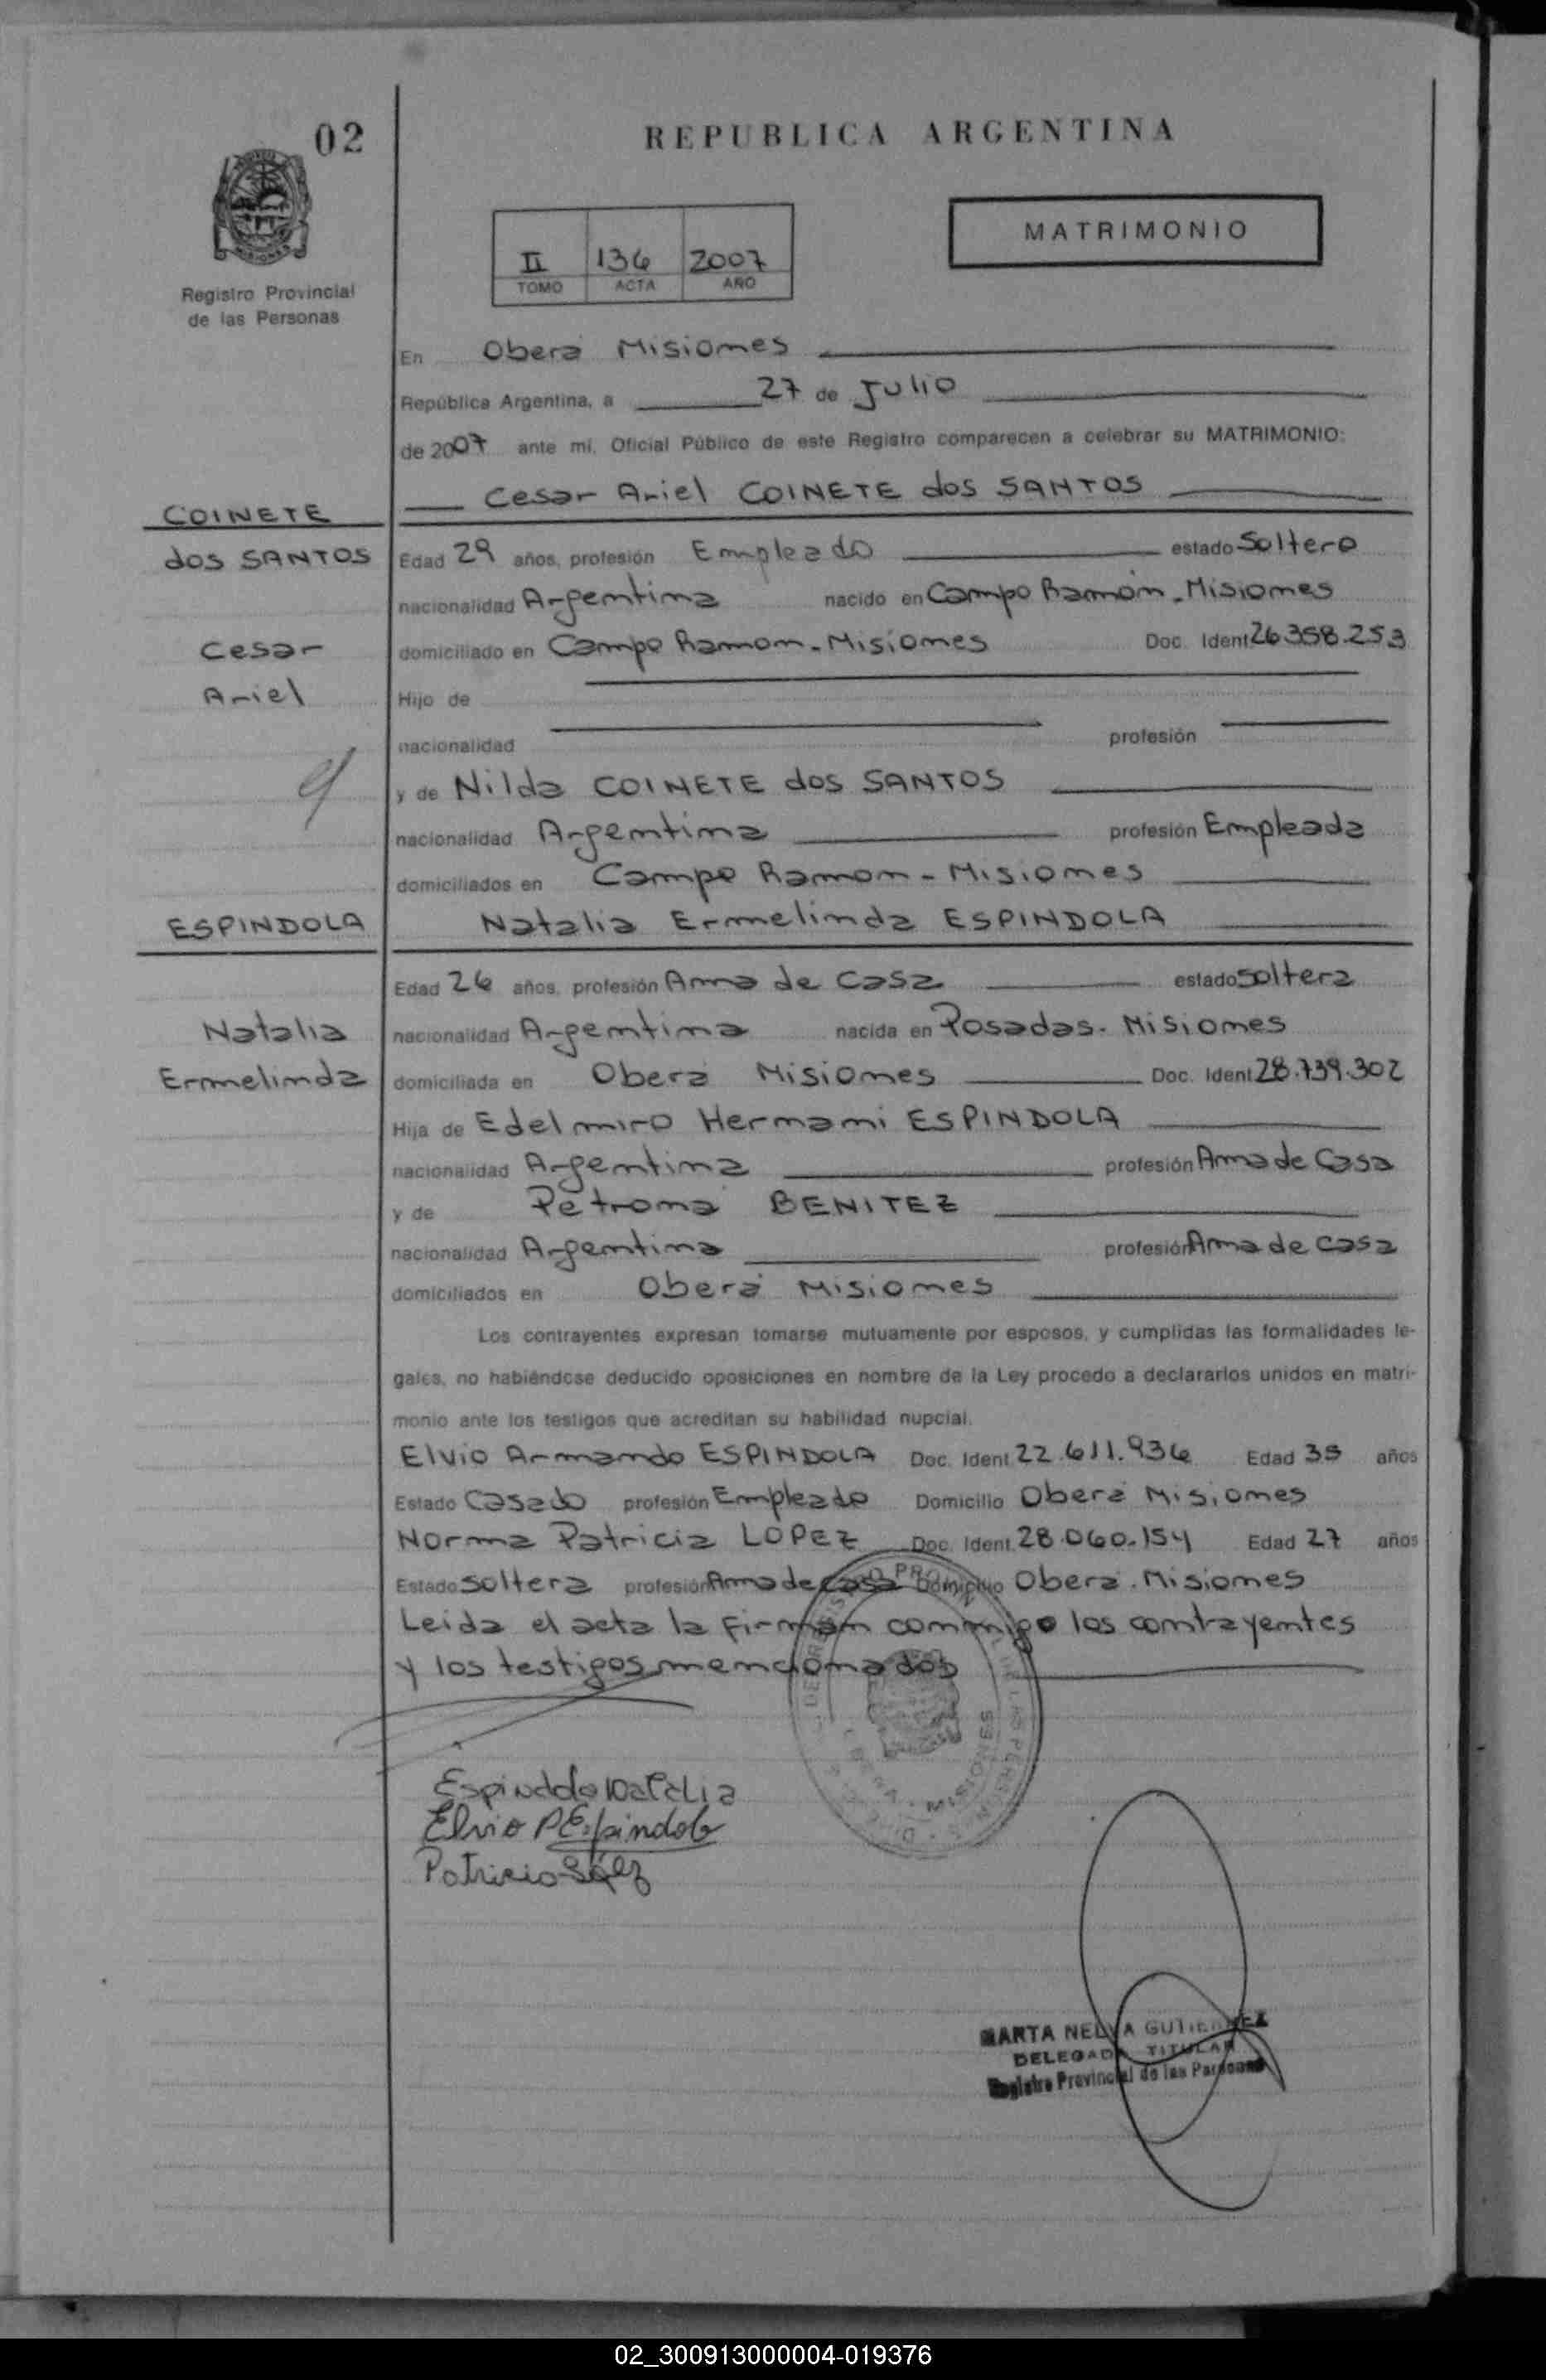 02
REPUBLICA ARGENTINA
MATRIMONIO
II 136 2007
TOMO ACTA AÑO
Registro Provincial
de las Personas
En Oberá Misiones
República Argentina, a 27 de Julio
de 2007 ante mi, Oficial Público de este Registro comparecen a celebrar su MATRIMONIO:
Cesar Ariel COINETE dos SANTOS
COINETE
dos SANTOS
Cesar
Ariel
Edad 29 años, profesión Empleado estado Soltero
nacionalidad Argentina nacido en Campo Ramón - Misiones
domiciliado en Campo Ramon - Misiones Doc. Ident 26.358.253
Hijo de
nacionalidad profesión
y de Nilda COINETE dos SANTOS
nacionalidad Argentina profesión Empleada
domiciliados en Campo Ramon - Misiones
ESPINDOLA
Natalia Ermelinda ESPINDOLA
Natalia
Ermelinda
Edad 26 años, profesión Ama de Casa estado soltera
nacionalidad Argentina nacida en Posadas - Misiones
domiciliada en Oberá Misiones Doc. Ident 28.739.302
Hija de Edelmiro Hernani ESPINDOLA
nacionalidad Argentina profesión Ama de Casa
y de Petrona BENITEZ
nacionalidad Argentina profesión Ama de casa
domiciliados en Oberá Misiones
Los contrayentes expresan tomarse mutuamente por esposos, y cumplidas las formalidades le-
gales, no habiéndose deducido oposiciones en nombre de la Ley procedo a declararlos unidos en matri-
monio ante los testigos que acreditan su habilidad nupcial.
Elvio Armando ESPINDOLA Doc. Ident 22.611.936 Edad 35 años
Estado Casado profesión Empleado Domicilio Oberá Misiones
Norma Patricia LOPEZ Doc. Ident. 28.060.154 Edad 27 años
Estado soltera profesión Ama de casa Domicilio Oberá - Misiones
Leida el acta la firman conmigo los contrayentes
y los testigos mencionados
MISIONES
Espindola Natalia
Elvio A Espindola
Patricia
MARTA NELVA GUTIERREZ
DELEGADA TITULAR
Registro Provincial de las Personas
02_300913000004-019376